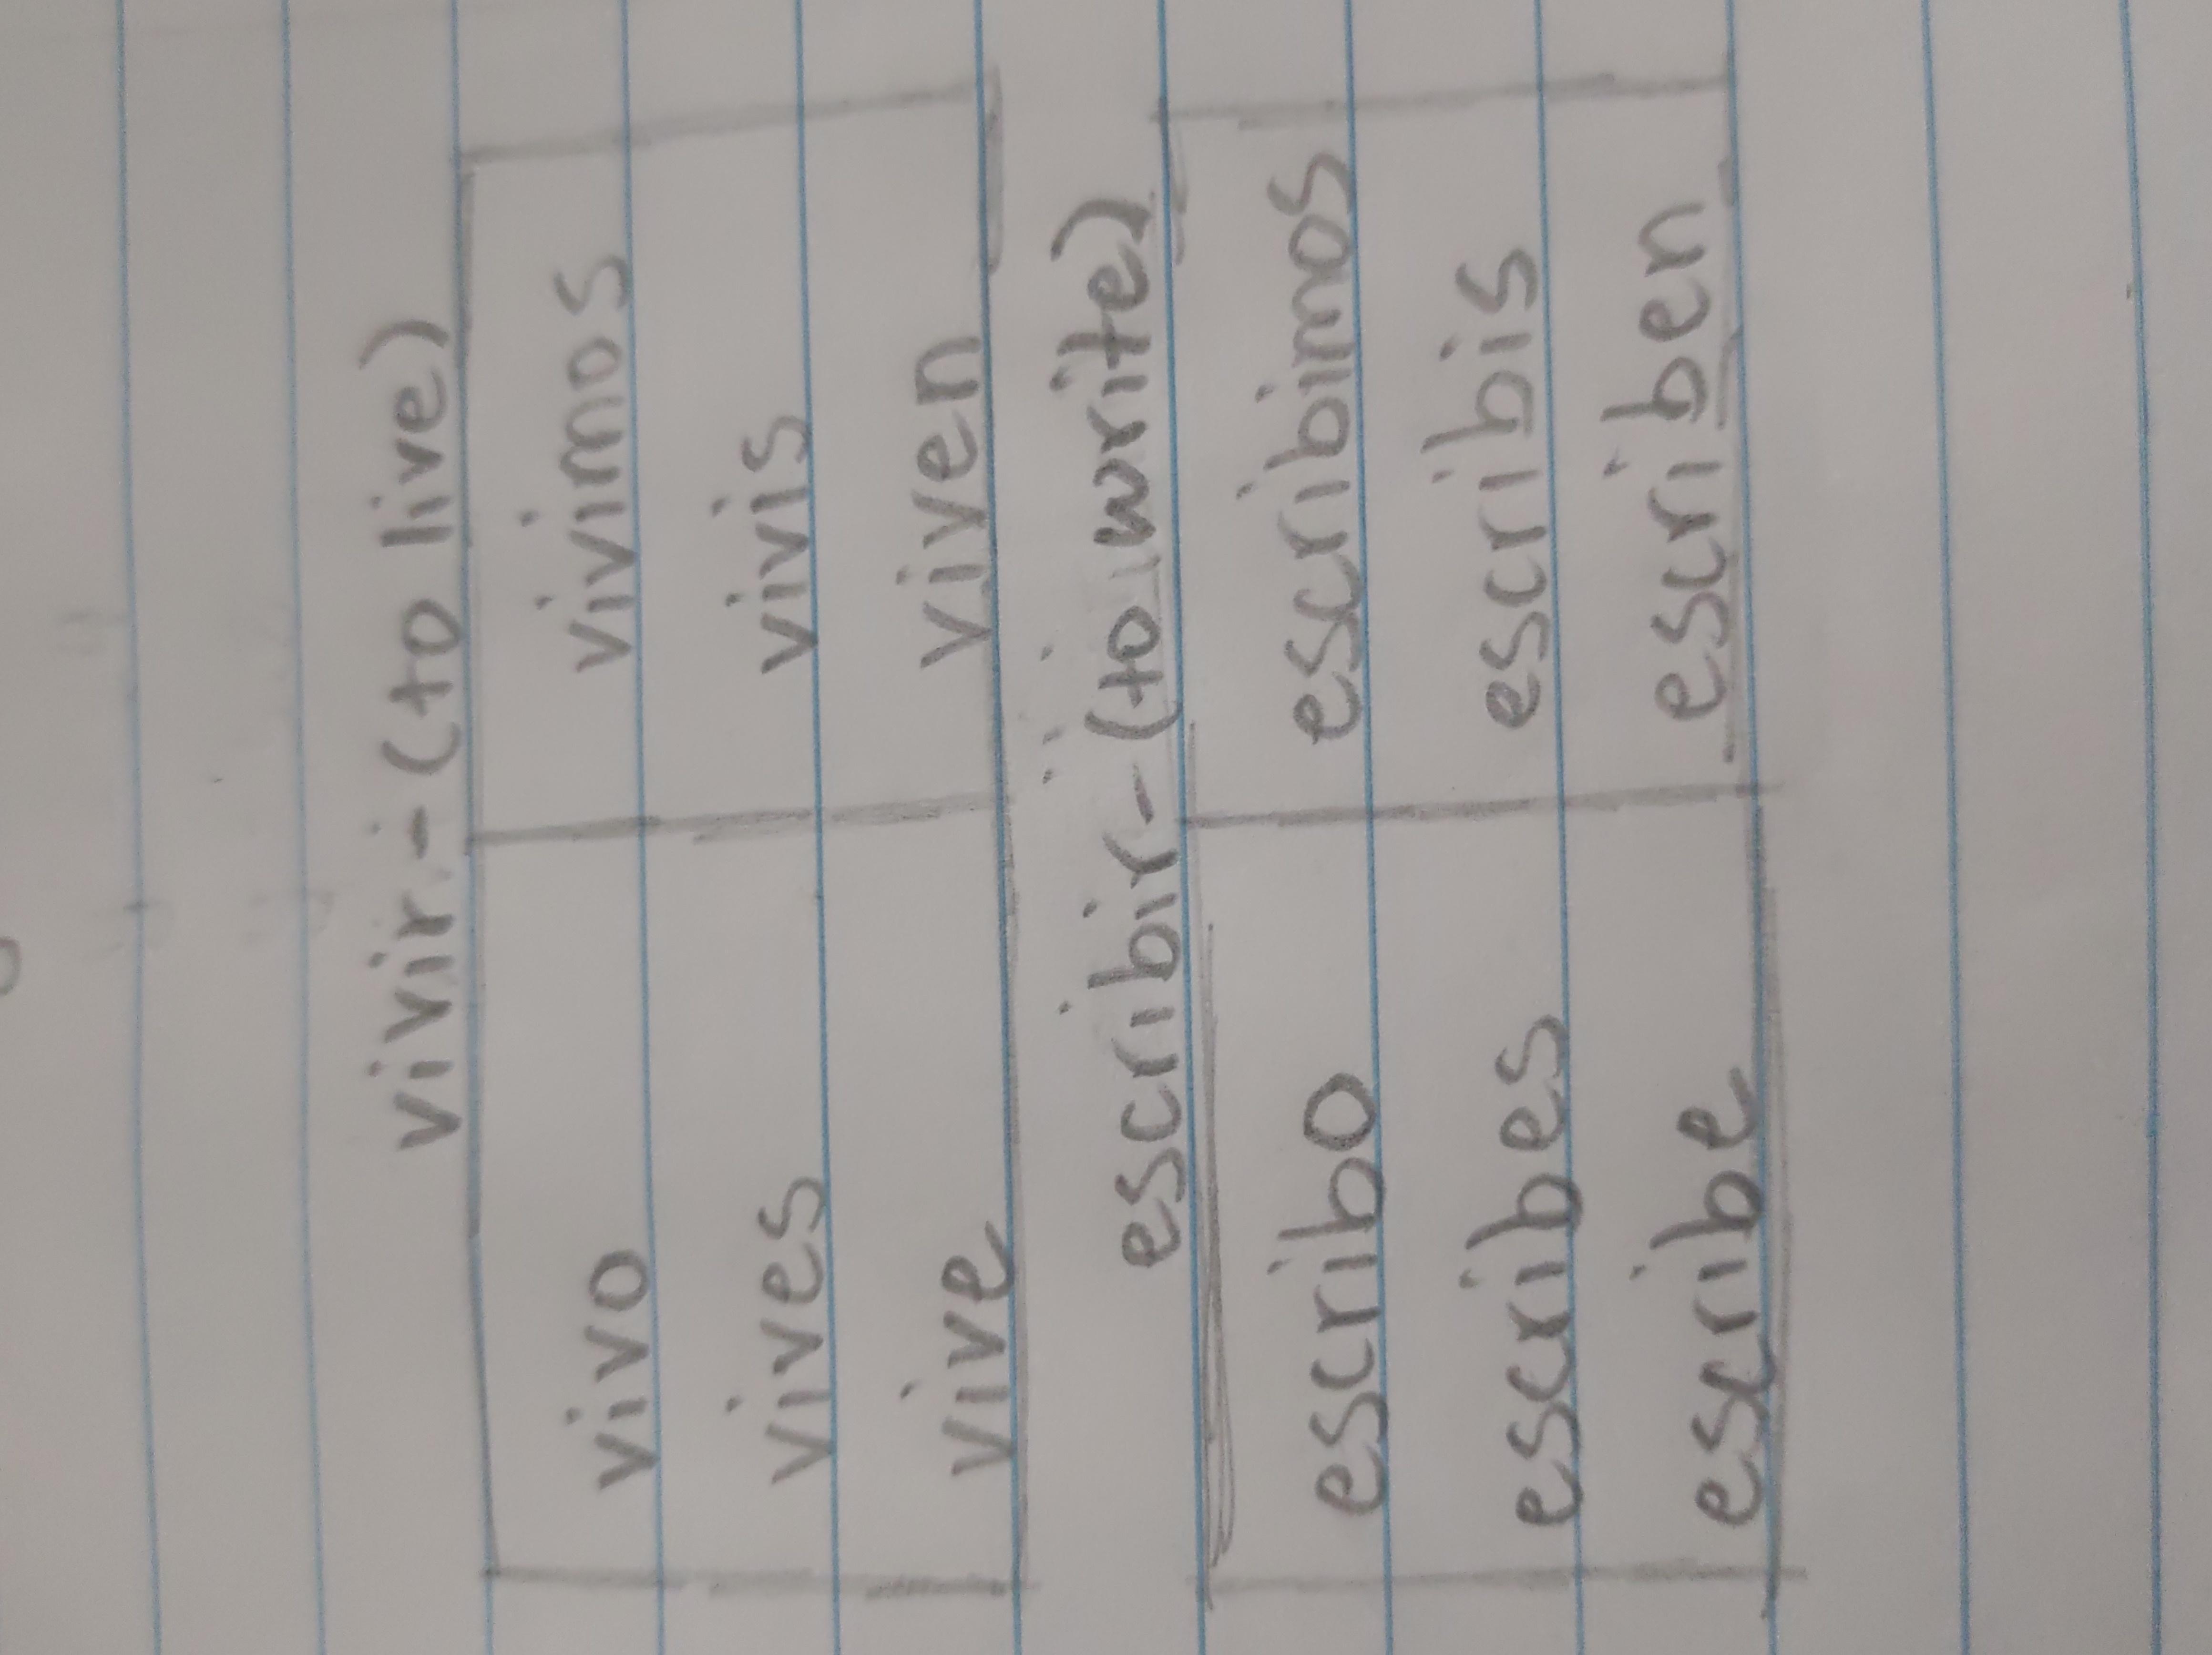 vivir - (to live)
vivo vivimos
vives vivis
vive viven
escribir - (to write)
escribo escribimos
escribes escribis
escribe escriben